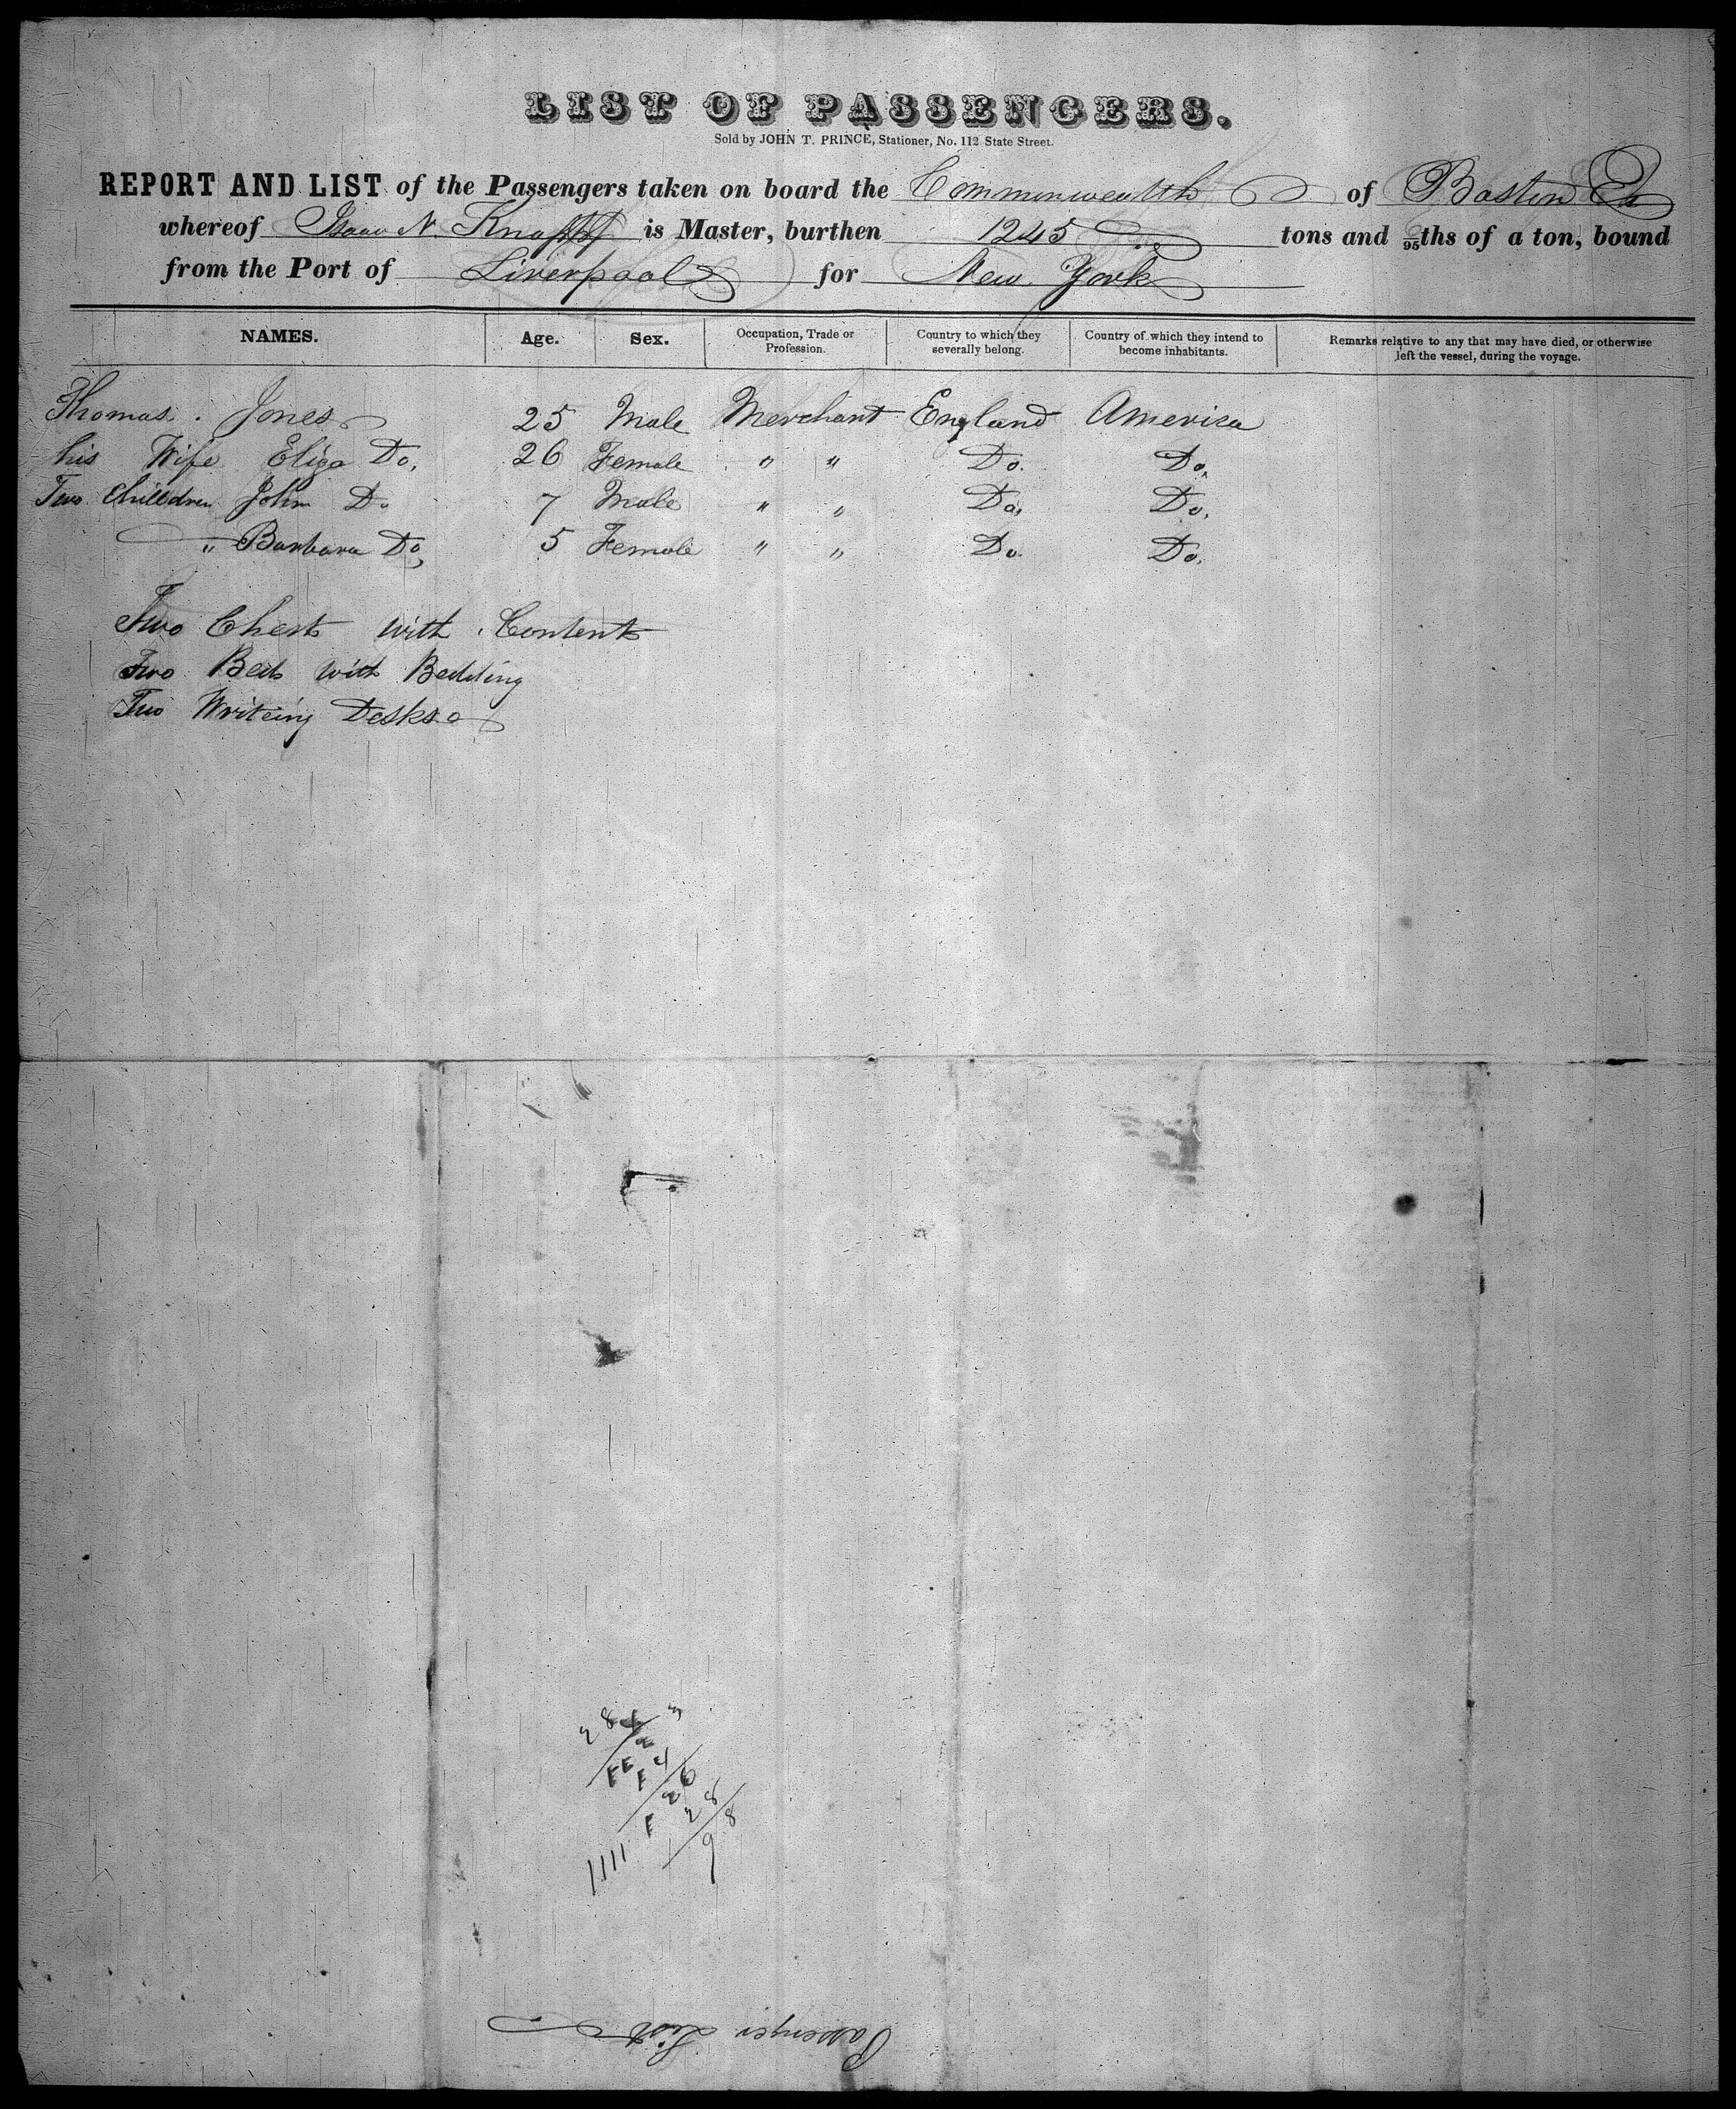 LIST OF PASSENGERS.
Sold by JOHN T. PRINCE, Stationer, No. 112 State Street.
REPORT AND LIST of the Passengers taken on board the Commonwealth of Boston
whereof Isaac N. Knapp is Master, burthen 1245 tons and 95ths of a ton, bound
from the Port of Liverpool for New York
NAMES. Age. Sex. Occupation, Trade or Profession. Country to which they severally belong. Country of which they intend to become inhabitants. Remarks relative to any that may have died, or otherwise left the vessel, during the voyage.
Thomas Jones 25 Male Merchant England America
his Wife Eliza Do, 26 Female " " Do. Do,
Two Chilldren John Do 7 Male " " Do, Do,
" Barbara Do, 5 Female " " Do. Do.
Two Chests with Contents
Two Beds with Bedding
Two Writeing Desks
Passenger List